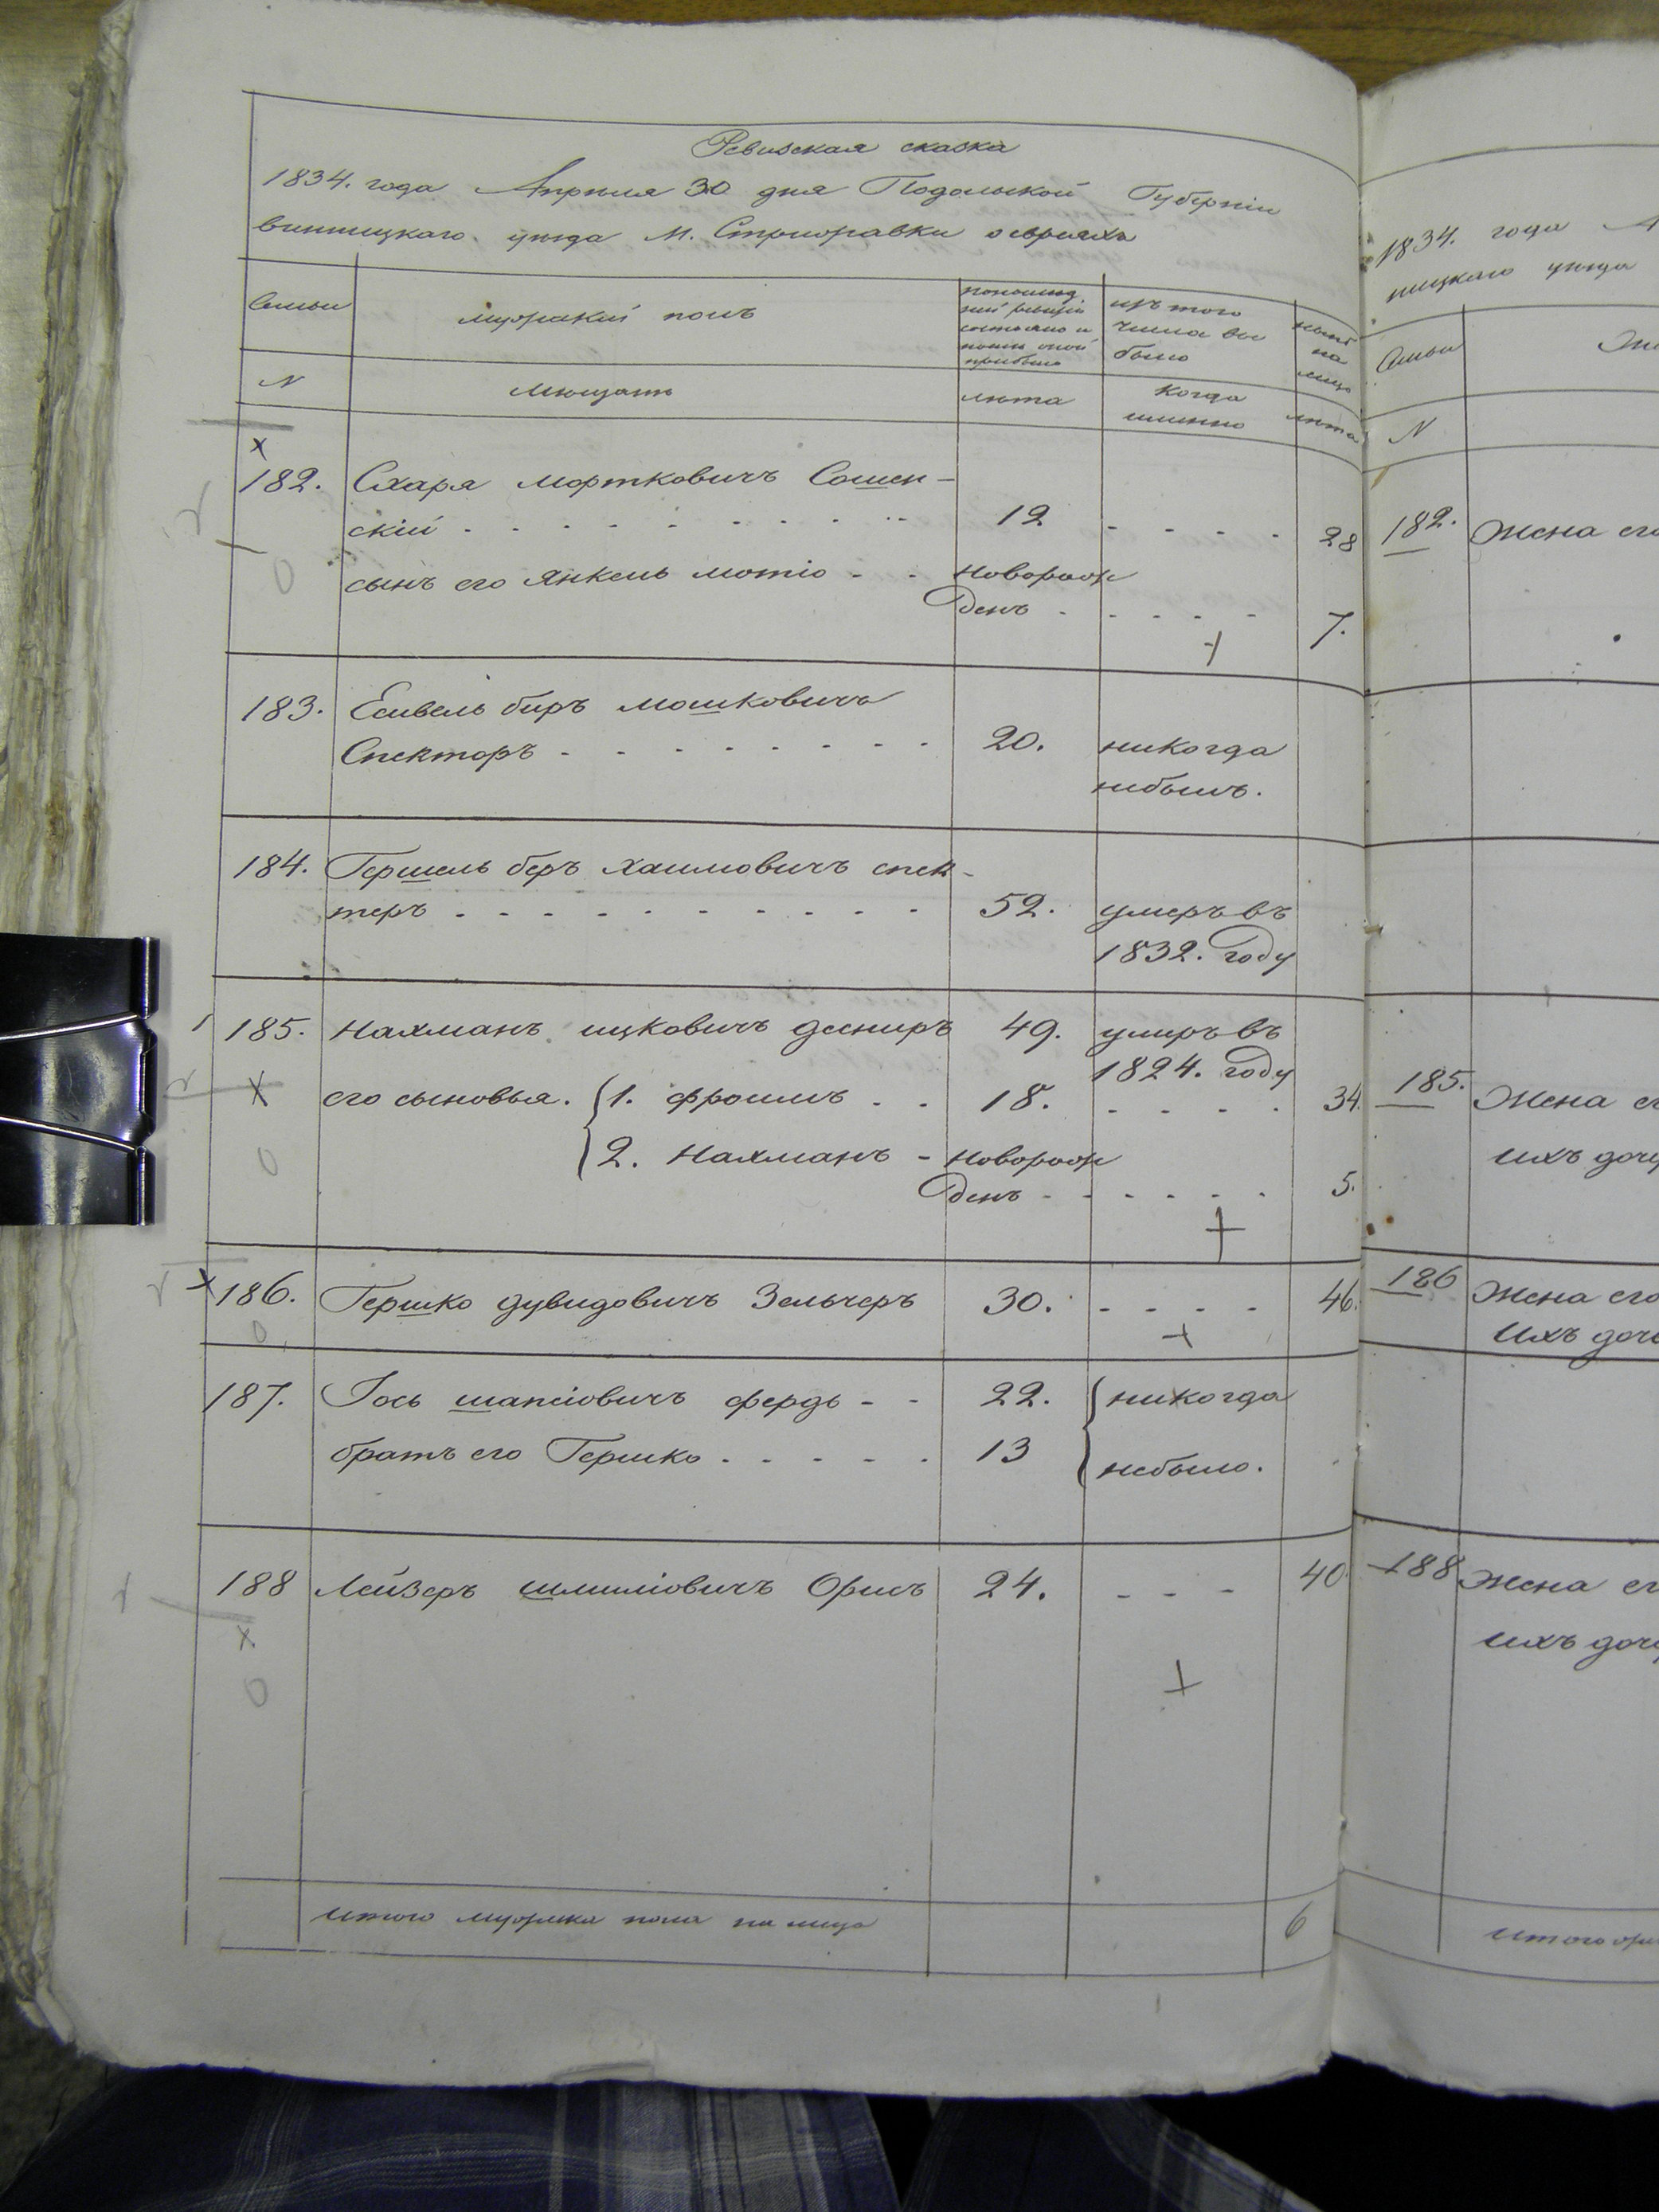 Ревизская сказка
1834. года Апрѣля 30 дня Подольской Губерніи
винницкаго уѣзда М. Стрижавки о евреяхъ
Семьи
мужеский полъ
по последней ревизіи состояло и после оной прибыло
изъ того числа выбыло
ныне на лицо
N
Мещане
лѣта
Когда именно
лѣта
182. Схаря Мортковичъ Сошен-
скій 12 28
сынъ его Янкель мотіо новорож
денъ 7.
183. Есивель биръ мошковичъ
Спекторъ 20. никогда
небылъ.
184. Гершель беръ хаимовичъ спек-
теръ 52. умеръ въ
1832. году
185. Нахманъ ицковичъ 49. умиръ въ
1824. году
его сыновья. 1. фроимъ 18. 34.
2. Нахманъ новорож
денъ 5.
186. Гершко дувидовичъ Зельчеръ 30. 46.
187. Іось шапсіовичъ фердь 22. никогда
братъ его Гершко 13 небыло.
188 Лейзеръ шлиміовичъ Орисъ 24. 40
Итого мужеска пола на лицо 6
1834. года А
ницкаго уѣзда
Семьи
N
182. Жена его
185. Жена ег
ихъ доч
186 Жена его
Ихъ доч
188 Жена ег
Ихъ доч
Итого